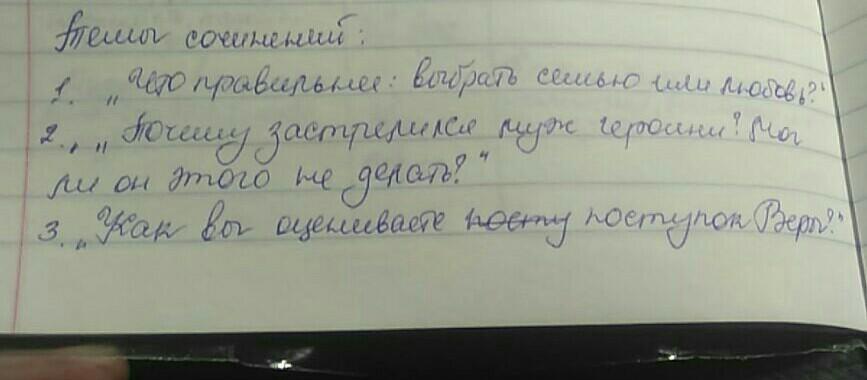 Темы сочинений:
1. „Что правильнее: выбрать семью или любовь?“
2. „Почему застрелился муж героини? Мог
ли он этого не делать?“
3. „Как вы оцениваете посту поступок Веры?“